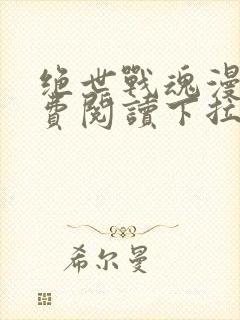 绝世戰魂漫
費閱讀下拉
希尔曼